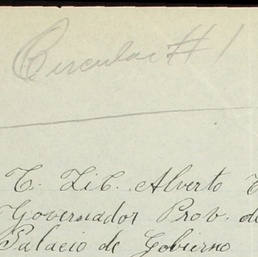 Circular #1
C. Lic. Alverto
Governador Prov. de
Palacio de Gobierno